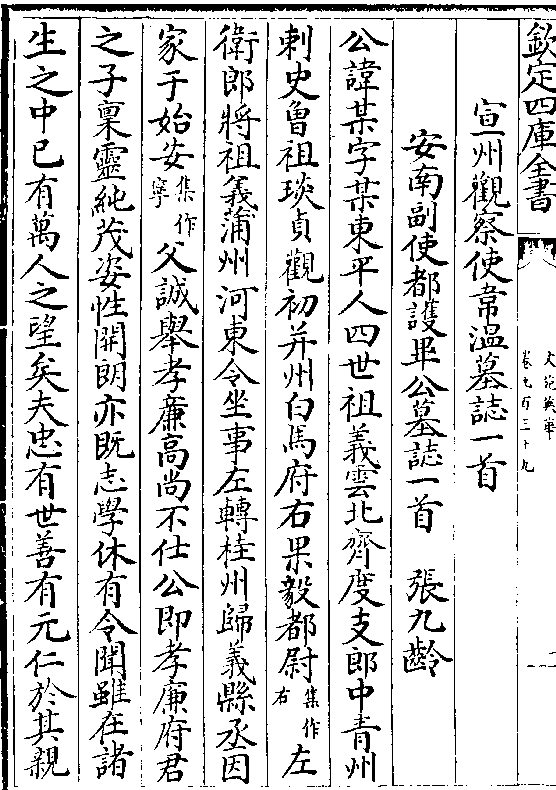 欽定四庫全書
文苑英華
卷九百三十九
一
宣州觀察使韋温墓誌一首
安南副使都護畢公墓誌一首 張九齡
公諱某字某東平人四世祖義雲北齊度支郎中青州
刺史曾祖琰貞觀初并州白馬府右果毅都尉集作右左
衛郎將祖義蒲州河東令坐事左轉桂州歸義縣丞因
家于始安集作寧父誠舉孝廉高尚不仕公即孝廉府君
之子稟靈純茂姿性開朗亦既志學休有令聞雖在諸
生之中已有萬人之望矣夫忠有世善有元仁於其親